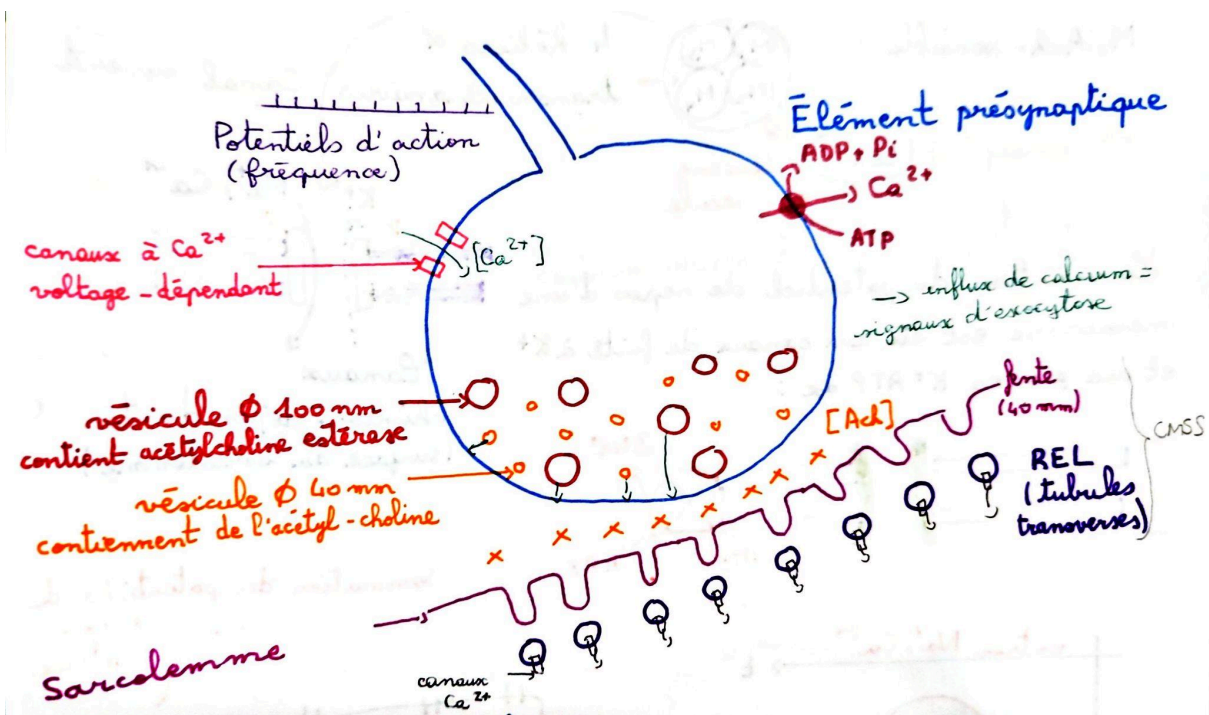 Élément présynaptique
Potentiels d'action
(fréquence)
ADP + Pi
Ca²⁺
ATP
canaux à Ca²⁺
voltage-dépendant
[Ca²⁺]
→ influx de calcium =
signaux d'exocytose
vésicule Ø 100 nm
contient acétylcholine estérase
vésicule Ø 40 nm
contiennent de l'acétyl-choline
[Ach]
fente
(40 nm)
CMSS
REL
(tubules
transverses)
Sarcolemme
canaux
Ca²⁺